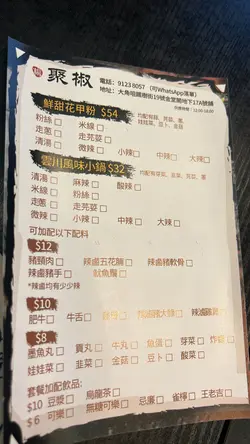 聚椒
電話：9123 8057 (可WhatsApp落單)
地址：大角咀
鮮甜花甲粉 $54
粉絲□ 米線□
走蔥□ 走芫荽□
微辣□ 小辣□ 中辣□ 大辣□
雲川風味小鍋 $32
清湯□ 麻辣□ 酸辣□
米線□ 粉絲□
走蔥□ 走芫荽□
微辣□ 小辣□ 中辣□ 大辣□
可加配以下配料
$12
豬頸肉□ 辣鹵五花腩□ 辣鹵豬軟骨□
辣鹵豬手□ 魷魚鬚□
*辣鹵均有少少辣
$10
肥牛□ 牛舌□
$8
墨魚丸□ 貢丸□ 牛丸□ 魚蛋□ 芽菜□
娃娃菜□ 韭菜□ 金菇□ 豆卜□ 酸菜□
套餐加配飲品:
$10 豆漿□ 烏龍茶□
$6 可樂□ 無糖可樂□ 忌廉□ 雀檸□ 王老吉□